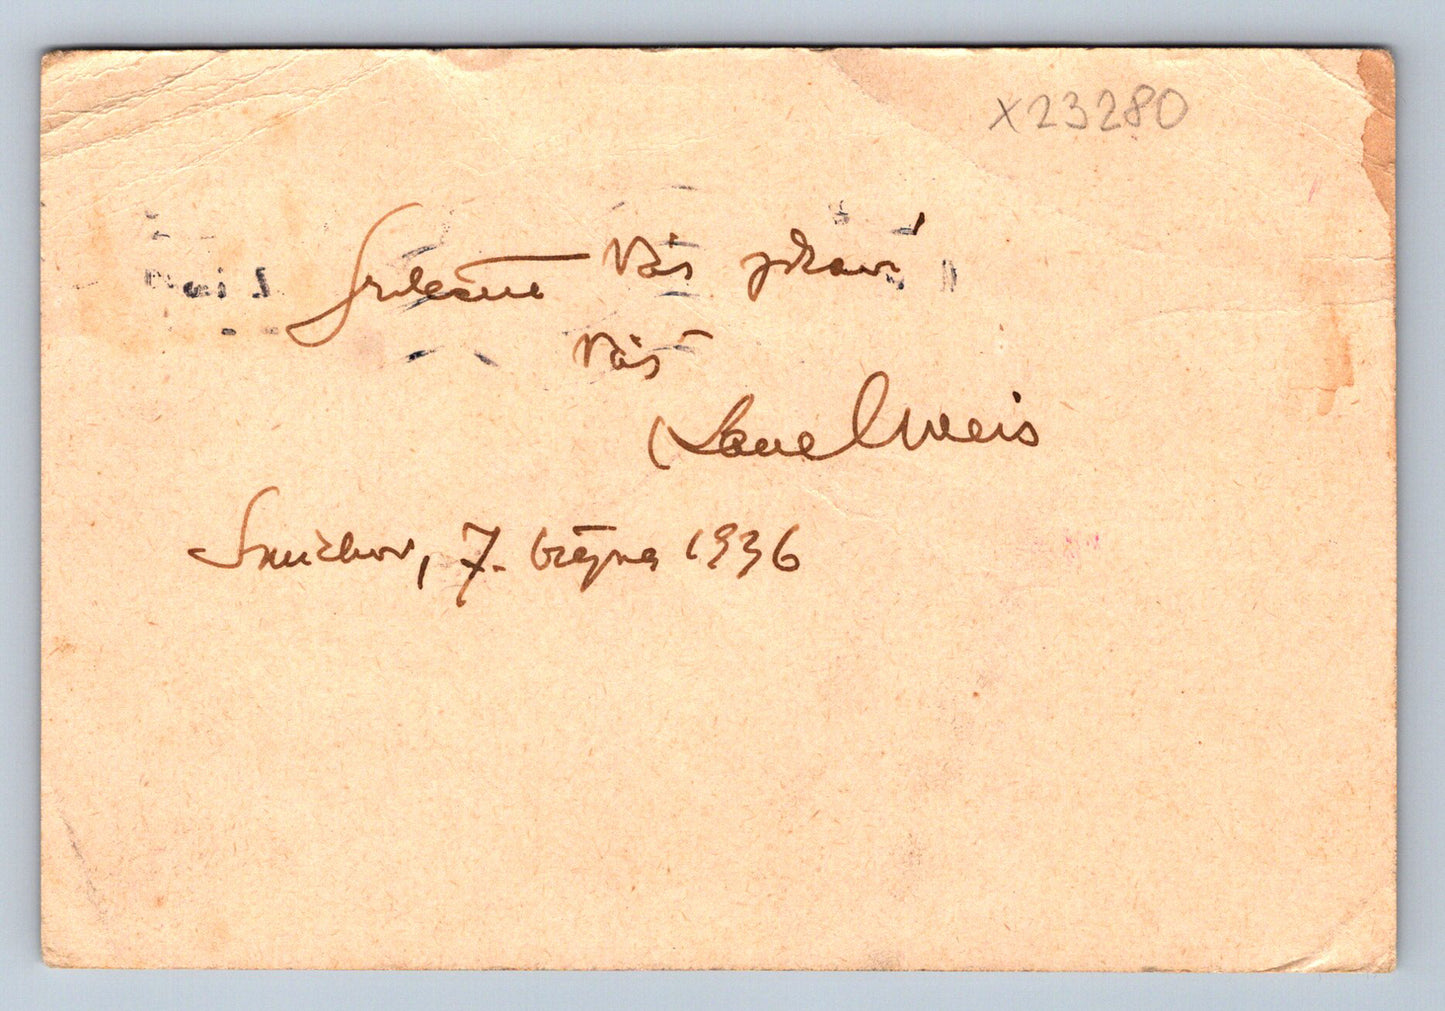 X23280
Srdečně Vás zdraví
Váš
Karel Weis
Smíchov, 7. října 1936